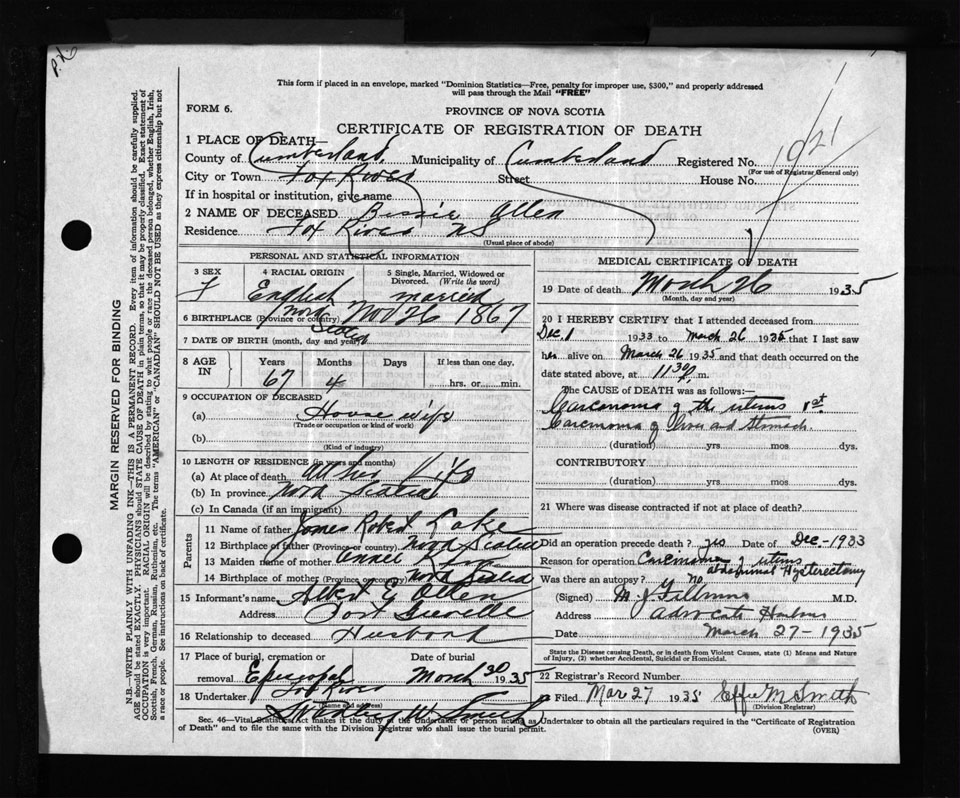 This form if placed in an envelope, marked "Dominion Statistics—Free, penalty for improper use, $300," and properly addressed
will pass through the Mail "FREE"
FORM 6.
PROVINCE OF NOVA SCOTIA
CERTIFICATE OF REGISTRATION OF DEATH
1 PLACE OF DEATH—
County of Cumberland, Municipality of Cumberland Registered No. 1921
(For use of Registrar General only)
City or Town Fox River Street House No.
If in hospital or institution, give name
2 NAME OF DECEASED Bessie Allen
Residence Fox River NS
(Usual place of abode)
PERSONAL AND STATISTICAL INFORMATION
3 SEX 4 RACIAL ORIGIN 5 Single, Married, Widowed or Divorced. (Write the word)
F English married
6 BIRTHPLACE (Province or country) Nova Scotia
7 DATE OF BIRTH (month, day and year) Nov 26 1867
8 AGE IN Years Months Days If less than one day.
67 4 hrs. or min.
9 OCCUPATION OF DECEASED
(a) House wife
(Trade or occupation or kind of work)
(b)
(Kind of industry)
10 LENGTH OF RESIDENCE (in years and months)
(a) At place of death all her life
(b) In province Nova Scotia
(c) In Canada (if an immigrant)
Parents
11 Name of father James Robert Lake
12 Birthplace of father (Province or country) Nova Scotia
13 Maiden name of mother
14 Birthplace of mother (Province or country) Nova Scotia
15 Informant's name Albert E Allen
Address Port Greville
16 Relationship to deceased Husband
17 Place of burial, cremation or removal Date of burial
Episcopal Fox River March 30 1935
18 Undertaker
(Name and address)
MEDICAL CERTIFICATE OF DEATH
19 Date of death March 26 1935
(Month, day and year)
20 I HEREBY CERTIFY that I attended deceased from
Dec. 1 1933 to March 26 1935 that I last saw
her alive on March 26 1935 and that death occurred on the
date stated above, at 11 30 P. m.
The CAUSE OF DEATH was as follows:—
Carcinoma of the uterus 1st.
Carcinoma of Liver and Stomach.
(duration) yrs mos dys.
CONTRIBUTORY
(duration) yrs mos dys.
21 Where was disease contracted if not at place of death?
Did an operation precede death? yes Date of Dec.- 1933
Reason for operation Carcinoma uterus
abdominal Hysterectomy
Was there an autopsy? no
(Signed) M.D.
Address Advocate Harbour
Date March 27-1935
State the Disease causing Death, or in death from Violent Causes, state (1) Means and Nature
of Injury, (2) whether Accidental, Suicidal or Homicidal.
22 Records Record Number
23 Filed Mar 27 1935 Effie M Smith
(Division Registrar)
Sec. 46—Vital Statistics Act makes it the duty of the Undertaker or person acting as Undertaker to obtain all the particulars required in the "Certificate of Registration
of Death" and to file the same with the Division Registrar who shall issue the burial permit.
(OVER)
MARGIN RESERVED FOR BINDING
N.B.—WRITE PLAINLY WITH UNFADING INK—THIS IS A PERMANENT RECORD. Every item of information should be carefully supplied.
AGE should be stated EXACTLY. PHYSICIANS should STATE CAUSE OF DEATH in plain terms, so that it may be properly classified. Exact statement of
OCCUPATION is very important. RACIAL ORIGIN will be described by stating to what people or race the deceased person belonged, whether English, Irish,
Scottish, French, German, Russian, Ruthenian, etc. The terms "AMERICAN" or "CANADIAN" SHOULD NOT BE USED as they express citizenship but not
a race or people. See instructions on back of certificate.